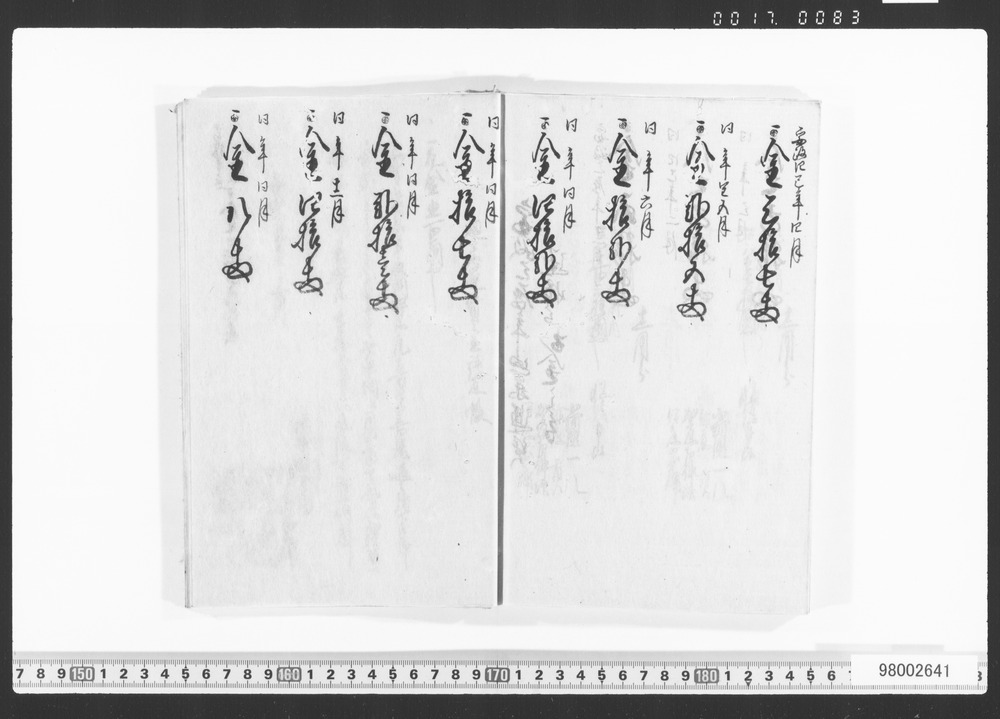 0017.0083
安政四巳年四月
一金三拾七両
同年閏五月
一金弐拾五両
同年六月
一金拾弐両
同年同月
一金四拾弐両
同年同月
一金拾七両
同年同月
一金弐拾壱両
同年十一月
一金四拾両
同年同月
一金八両
7 8 9 150 1 2 3 4 5 6 7 8 9 160 1 2 3 4 5 6 7 8 9 170 1 2 3 4 5 6 7 8 9 180 1 2 3 4 5 6
98002641